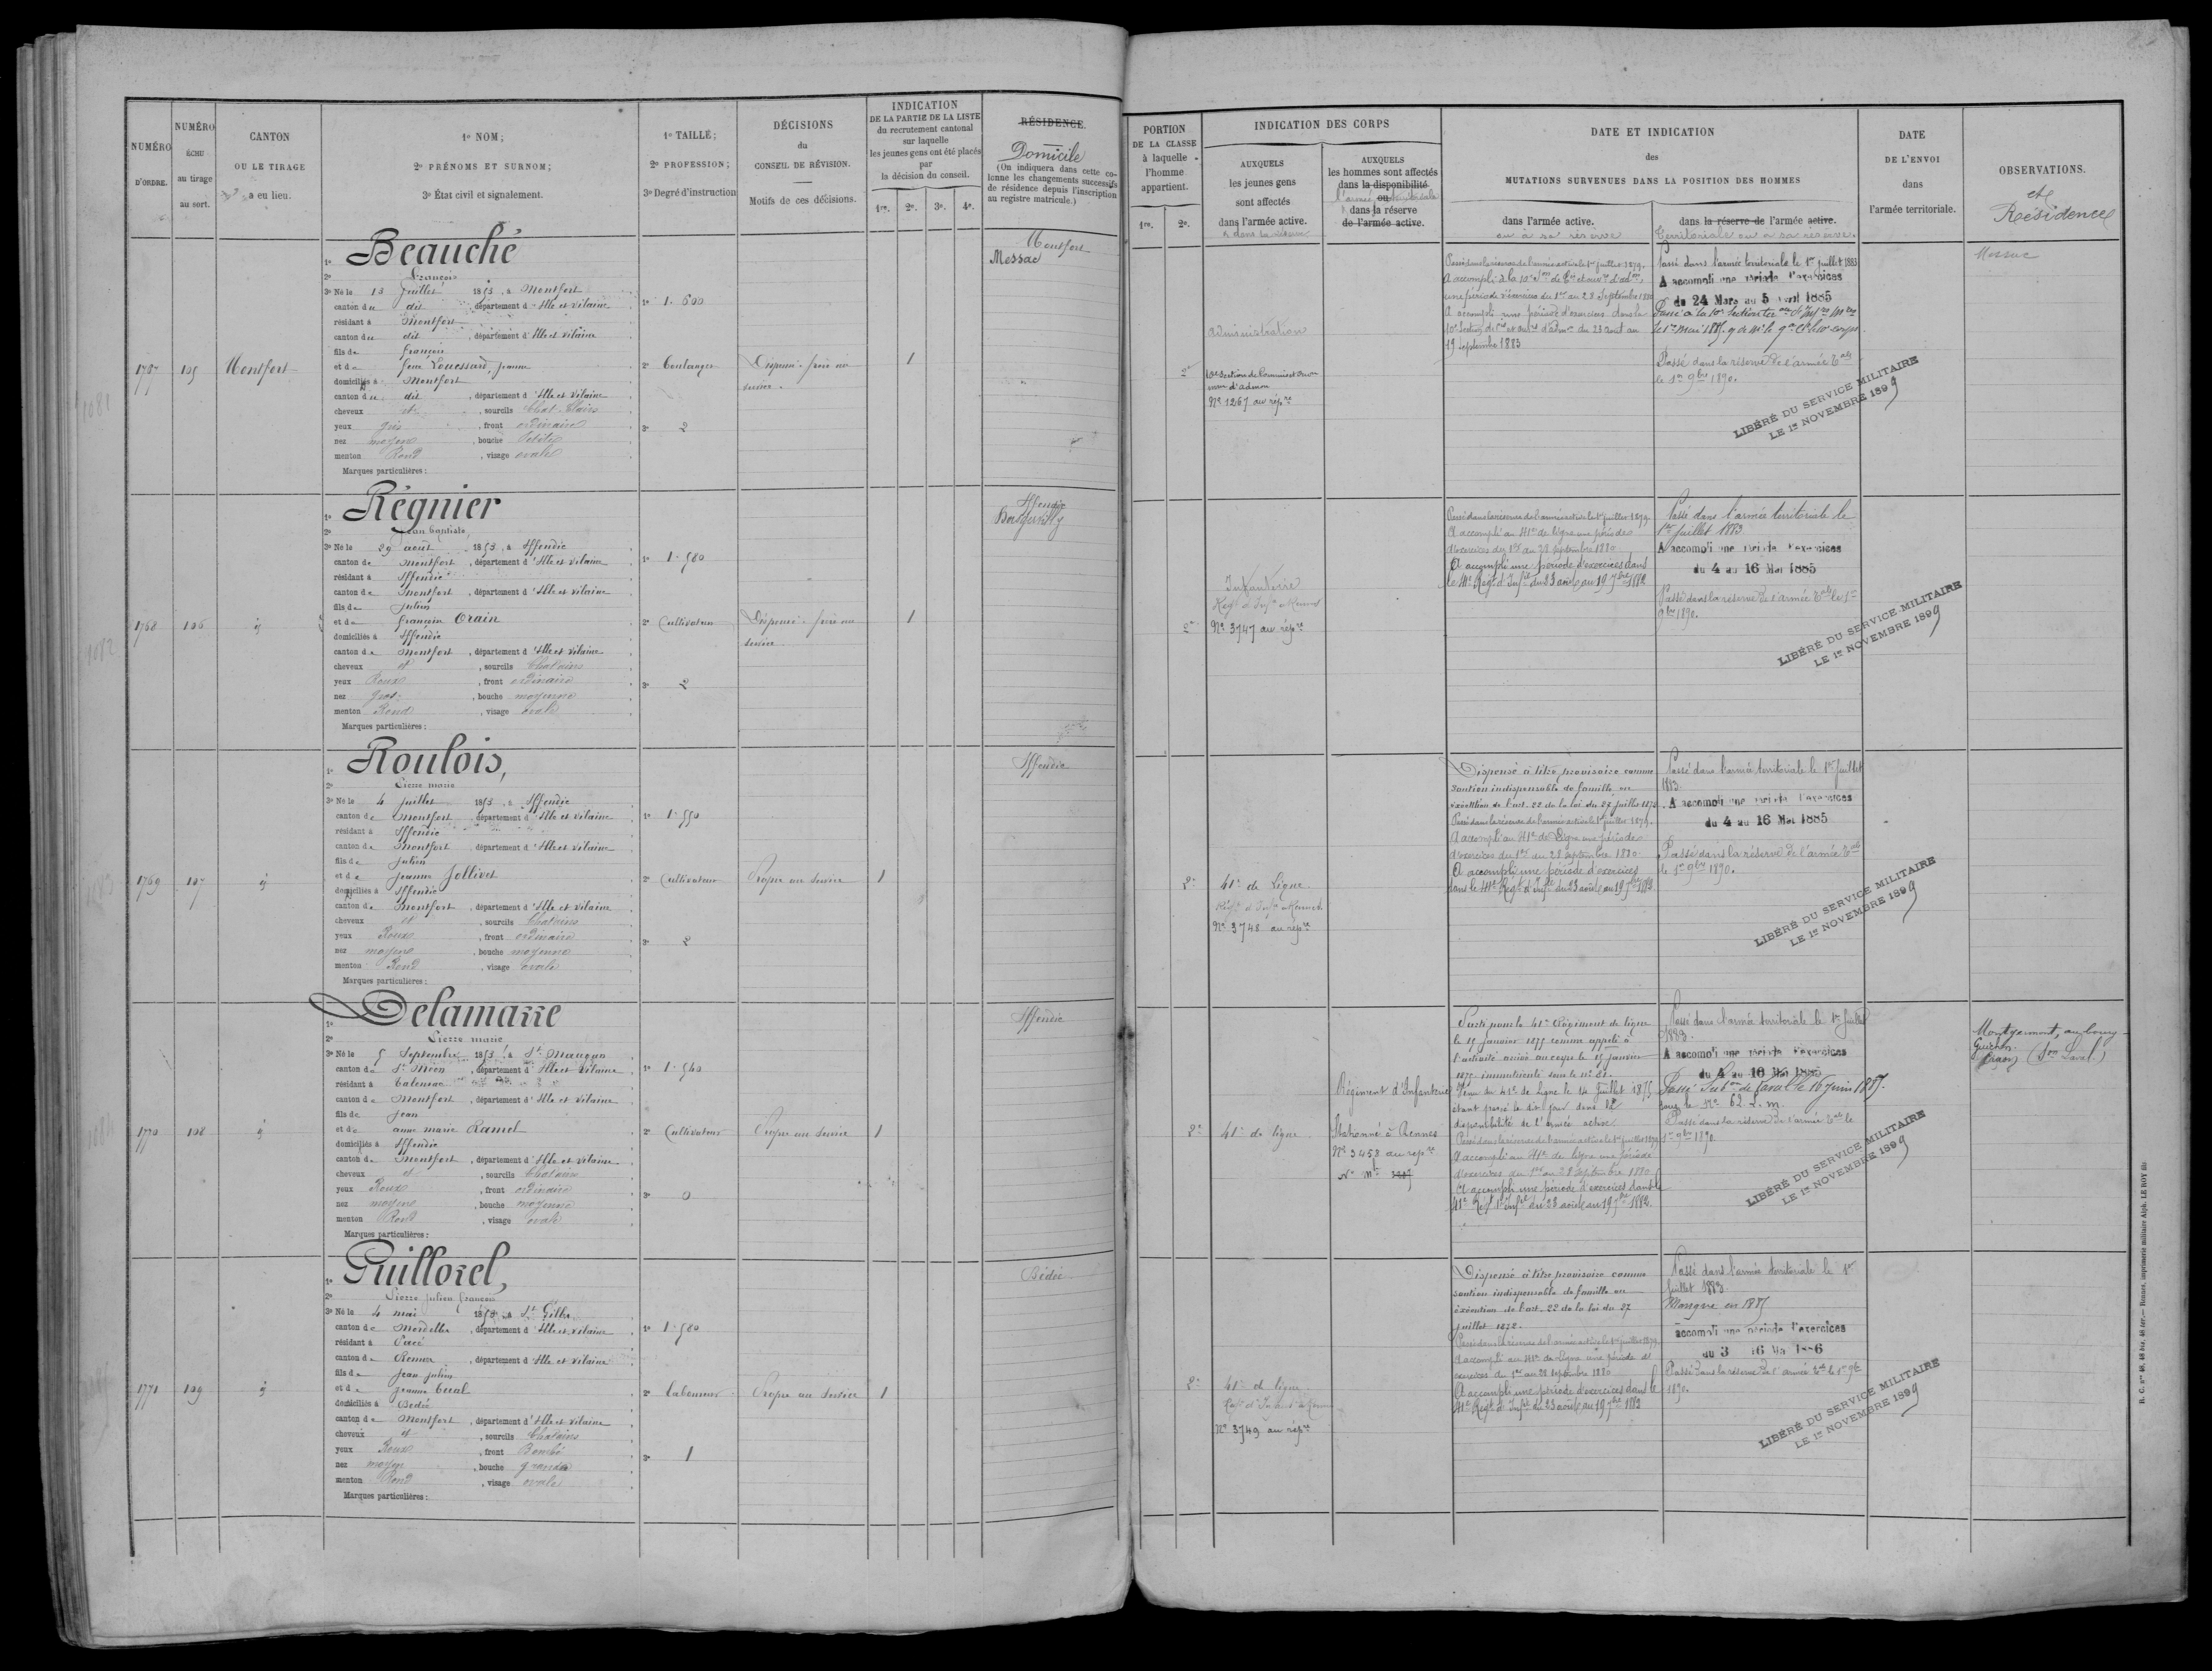 NUMÉRO D'ORDRE.
NUMÉRO ÉCHU au tirage au sort.
CANTON OU LE TIRAGE a eu lieu.
1º NOM;
2º PRÉNOMS ET SURNOM;
3º État civil et signalement.
1º TAILLE;
2º PROFESSION;
3º Degré d'instruction
DÉCISIONS
du
CONSEIL DE RÉVISION.
Motifs de ces décisions.
INDICATION
DE LA PARTIE DE LA LISTE
du recrutement cantonal
sur laquelle
les jeunes gens ont été placés
par
la décision du conseil.
1re. 2e. 3e. 4e.
RÉSIDENCE.
Domicile
(On indiquera dans cette co-
lonne les changements successifs
de résidence depuis l'inscription
au registre matricule.)
PORTION
DE LA CLASSE
à laquelle
l'homme
appartient.
1re. 2e.
INDICATION DES CORPS
AUXQUELS
les jeunes gens
sont affectés
dans l'armée active.
AUXQUELS
les hommes sont affectés
dans la disponibilité
ou
dans la réserve
de l'armée active.
DATE ET INDICATION
des
MUTATIONS SURVENUES DANS LA POSITION DES HOMMES
dans l'armée active.
ou à sa réserve
dans la réserve de l'armée active.
Territoriale ou à sa réserve.
DATE
DE L'ENVOI
dans
l'armée territoriale.
OBSERVATIONS.
et
Résidence
1767
105
Montfort
Beauché
2º François
3º Né le 13 Juillet 1853, à Montfort
canton du dit, département d'Ille et Vilaine
résidant à Montfort
canton du dit, département d'Ille et Vilaine
fils de François
et de
domiciliés à Montfort
canton du dit, département d'Ille et Vilaine
cheveux et, sourcils Chat. Clairs
yeux gris, front ordinaire
nez moyen, bouche Petite
menton Rond, visage ovale
Marques particulières :
1º 1.600
2º Boulanger
3º 2
1
Montfort
Messac
2e
administration
Nº 1267 au répre
Passé dans la réserve de l'armée active le 1er juillet 1879.
une période d'exercices du 1er au 28 Septembre 1880
A accompli une période d'exercices dans la
19 septembre 1883
Passé dans l'armée territoriale le 1er juillet 1883
A accompli une période d'exercices
du 24 Mars au 5 Avril 1885
Passé dans la réserve de l'armée Tale
le 1er 9bre 1890.
LIBÉRÉ DU SERVICE MILITAIRE
LE 1er NOVEMBRE 1899
Messac
1768
106
Régnier
2º Jean Baptiste
3º Né le 29 août 1853, à Iffendic
canton de Montfort, département d'Ille et Vilaine
résidant à Iffendic
canton de Montfort, département d'Ille et Vilaine
fils de Julien
et de Françoise Orain
domiciliés à Iffendic
canton de Montfort, département d'Ille et Vilaine
cheveux et, sourcils Chatains
yeux Roux, front ordinaire
nez gros, bouche moyenne
menton Rond, visage ovale
Marques particulières :
1º 1.580
2º Cultivateur
3º 2
1
Iffendic
2e
Infanterie
Nº 3747 au répre
Passé dans la réserve de l'armée active le 1er juillet 1879.
A accompli au 41e de Ligne une période
d'exercices du 1er au 28 septembre 1880
A accompli une période d'exercices dans
le 41e Régt d'Infie du 23 août au 19 7bre 1882
Passé dans l'armée territoriale le
1er Juillet 1883
A accompli une période d'exercices
du 4 au 16 Mai 1885
Passé dans la réserve de l'armée Tale le 1er
9bre 1890.
LIBÉRÉ DU SERVICE MILITAIRE
LE 1er NOVEMBRE 1899
1769
107
Roulois,
2º Pierre marie
3º Né le 4 juillet 1853, à Iffendic
canton de Montfort, département d'Ille et Vilaine
résidant à Iffendic
canton de Montfort, département d'Ille et Vilaine
fils de Julien
et de Jeanne Jollivet
domiciliés à Iffendic
canton de Montfort, département d'Ille et Vilaine
cheveux et, sourcils Chatains
yeux Roux, front ordinaire
nez moyen, bouche moyenne
menton Rond, visage ovale
Marques particulières :
1º 1.550
2º Cultivateur
3º 2
Propre au service
1
Iffendic
2e
41e de Ligne
Nº 3748 au répre
Dispensé à titre provisoire comme
soutien indispensable de famille en
exécution de l'art. 22 de la loi du 27 juillet 1872.
Passé dans la réserve de l'armée active le 1er juillet 1879.
A accompli au 41e de Ligne une période
d'exercices du 1er au 28 septembre 1880
A accompli une période d'exercices
dans le 41e Régt d'Infie du 23 août au 19 7bre 1882
Passé dans l'armée territoriale le 1er Juillet
1883.
A accompli une période d'exercices
du 4 au 16 Mai 1885
Passé dans la réserve de l'armée Tale
le 1er 9bre 1890.
LIBÉRÉ DU SERVICE MILITAIRE
LE 1er NOVEMBRE 1899
1770
108
Delamarre
2º Pierre marie
3º Né le 5 Septembre 1853, à St Maugan
canton de St Méen, département d'Ille et Vilaine
résidant à Talensac
canton de Montfort, département d'Ille et Vilaine
fils de Jean
et de anne marie Ramel
domiciliés à Iffendic
canton de Montfort, département d'Ille et Vilaine
cheveux et, sourcils Chatains
yeux Roux, front ordinaire
nez moyen, bouche moyenne
menton Rond, visage ovale
Marques particulières :
1º 1.540
2º Cultivateur
3º 0
Propre au service
1
Iffendic
2e
41e de ligne
Régiment d'Infanterie
Stationné à Rennes
Nº 3458 au répre
Parti pour le 41e Régiment de ligne
le 15 janvier 1875 comme appelé à
l'activité arrivé au corps le 15 janvier
1875 immatriculé sous le nº
Venu du 41e de Ligne le 14 Juillet 1875
étant passé le dit jour dans la
disponibilité de l'armée active
Passé dans la réserve de l'armée active le 1er juillet 1879
A accompli au 41e de Ligne une période
d'exercices du 1er au 28 septembre 1880
A accompli une période d'exercices dans le
41e Régt d'Infie du 23 août au 19 7bre 1882.
Passé dans l'armée territoriale le 1er Juillet
1883.
A accompli une période d'exercices
du 4 au 16 Mai 1885
Passé Subon de Laval le 16 juin 1887.
sous le Nº 62. L. m.
Passé dans la réserve de l'armée Tale le
1er 9bre 1890.
LIBÉRÉ DU SERVICE MILITAIRE
LE 1er NOVEMBRE 1899
Montgermont, au bourg
Craon (Son Laval)
1771
109
Guillorel,
2º Pierre Julien François
3º Né le 4 mai 1853, à St Gilles
canton de Mordelles, département d'Ille et Vilaine
résidant à Pacé
canton de Rennes, département d'Ille et Vilaine
fils de Jean Julien
et de Jeanne
domiciliés à Bédée
canton de Montfort, département d'Ille et Vilaine
cheveux et, sourcils Chatains
yeux Roux, front Bombé
nez moyen, bouche grande
menton Rond, visage ovale
Marques particulières :
1º 1.580
2º Laboureur
3º 1
Propre au Service
1
Bédée
2e
41e de ligne
Nº 3749 au répre
Dispensé à titre provisoire comme
soutien indispensable de famille en
exécution de l'art. 22 de la loi du 27
juillet 1872.
Passé dans la réserve de l'armée active le 1er juillet 1879
A accompli au 41e de Ligne une période d'
exercices du 1er au 28 septembre 1880
A accompli une période d'exercices dans le
41e Régt d'Infie du 23 août au 19 7bre 1882
Passé dans l'armée territoriale le 1er
Juillet 1883.
Manque en 1885
accompli une période d'exercices
du 3 16 Mai 1886
Passé dans la réserve de l'armée Tale le 1er 9bre
1890.
LIBÉRÉ DU SERVICE MILITAIRE
LE 1er NOVEMBRE 1899
Rennes, imprimerie militaire Alph. LE ROY fils